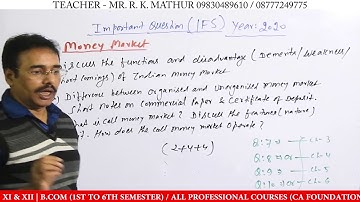 TEACHER - MR. R. K. MATHUR 09830489610 / 08777249775
Important Question (IFS) Year: 2020
Money Market
Discuss the functions and disadvantage (Demerits/Weakness/
Shortcomings) of Indian money market
Difference between Organised and Unorganised money market
Short notes on Commercial Paper & Certificate of Deposit.
What is call money market? Discuss the features (nature)
How does the call money market operate?
(2+4+4)
Ch-3
Ch-4
Ch-5
Ch-6
XI & XII | B.COM (1ST TO 6TH SEMESTER) / ALL PROFESSIONAL COURSES (CA FOUNDATION